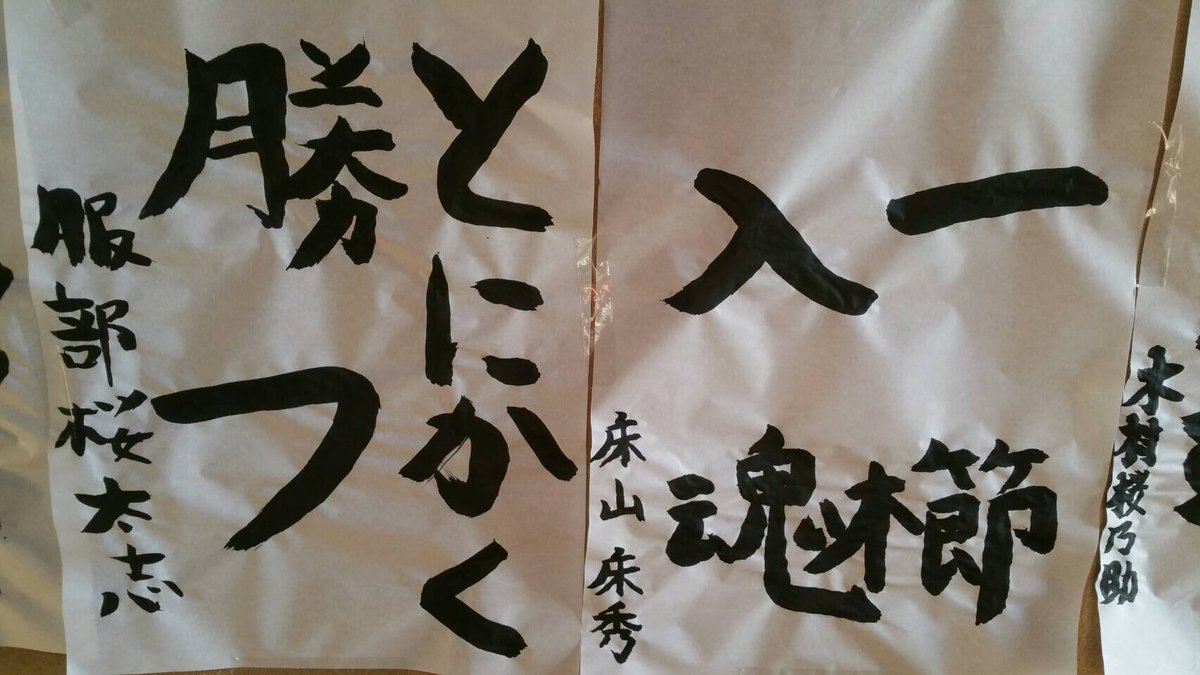 木村桜乃助
一櫛
入魂
床山 床秀
とにかく
勝つ
服部桜太志